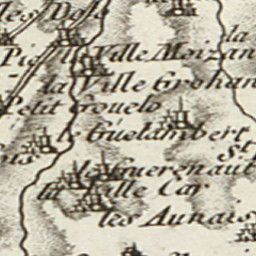 les Des
la
la Ville Moizan
la Ville Grohan
Petit Gouelo
le Guelambert
St
le Guerenault
la Ville Car
les Aunais